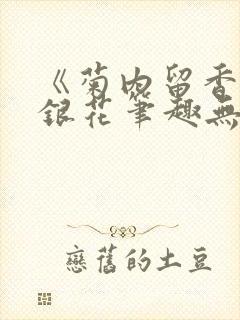 《菊内留香
銀花筆趣無
戀舊的土豆